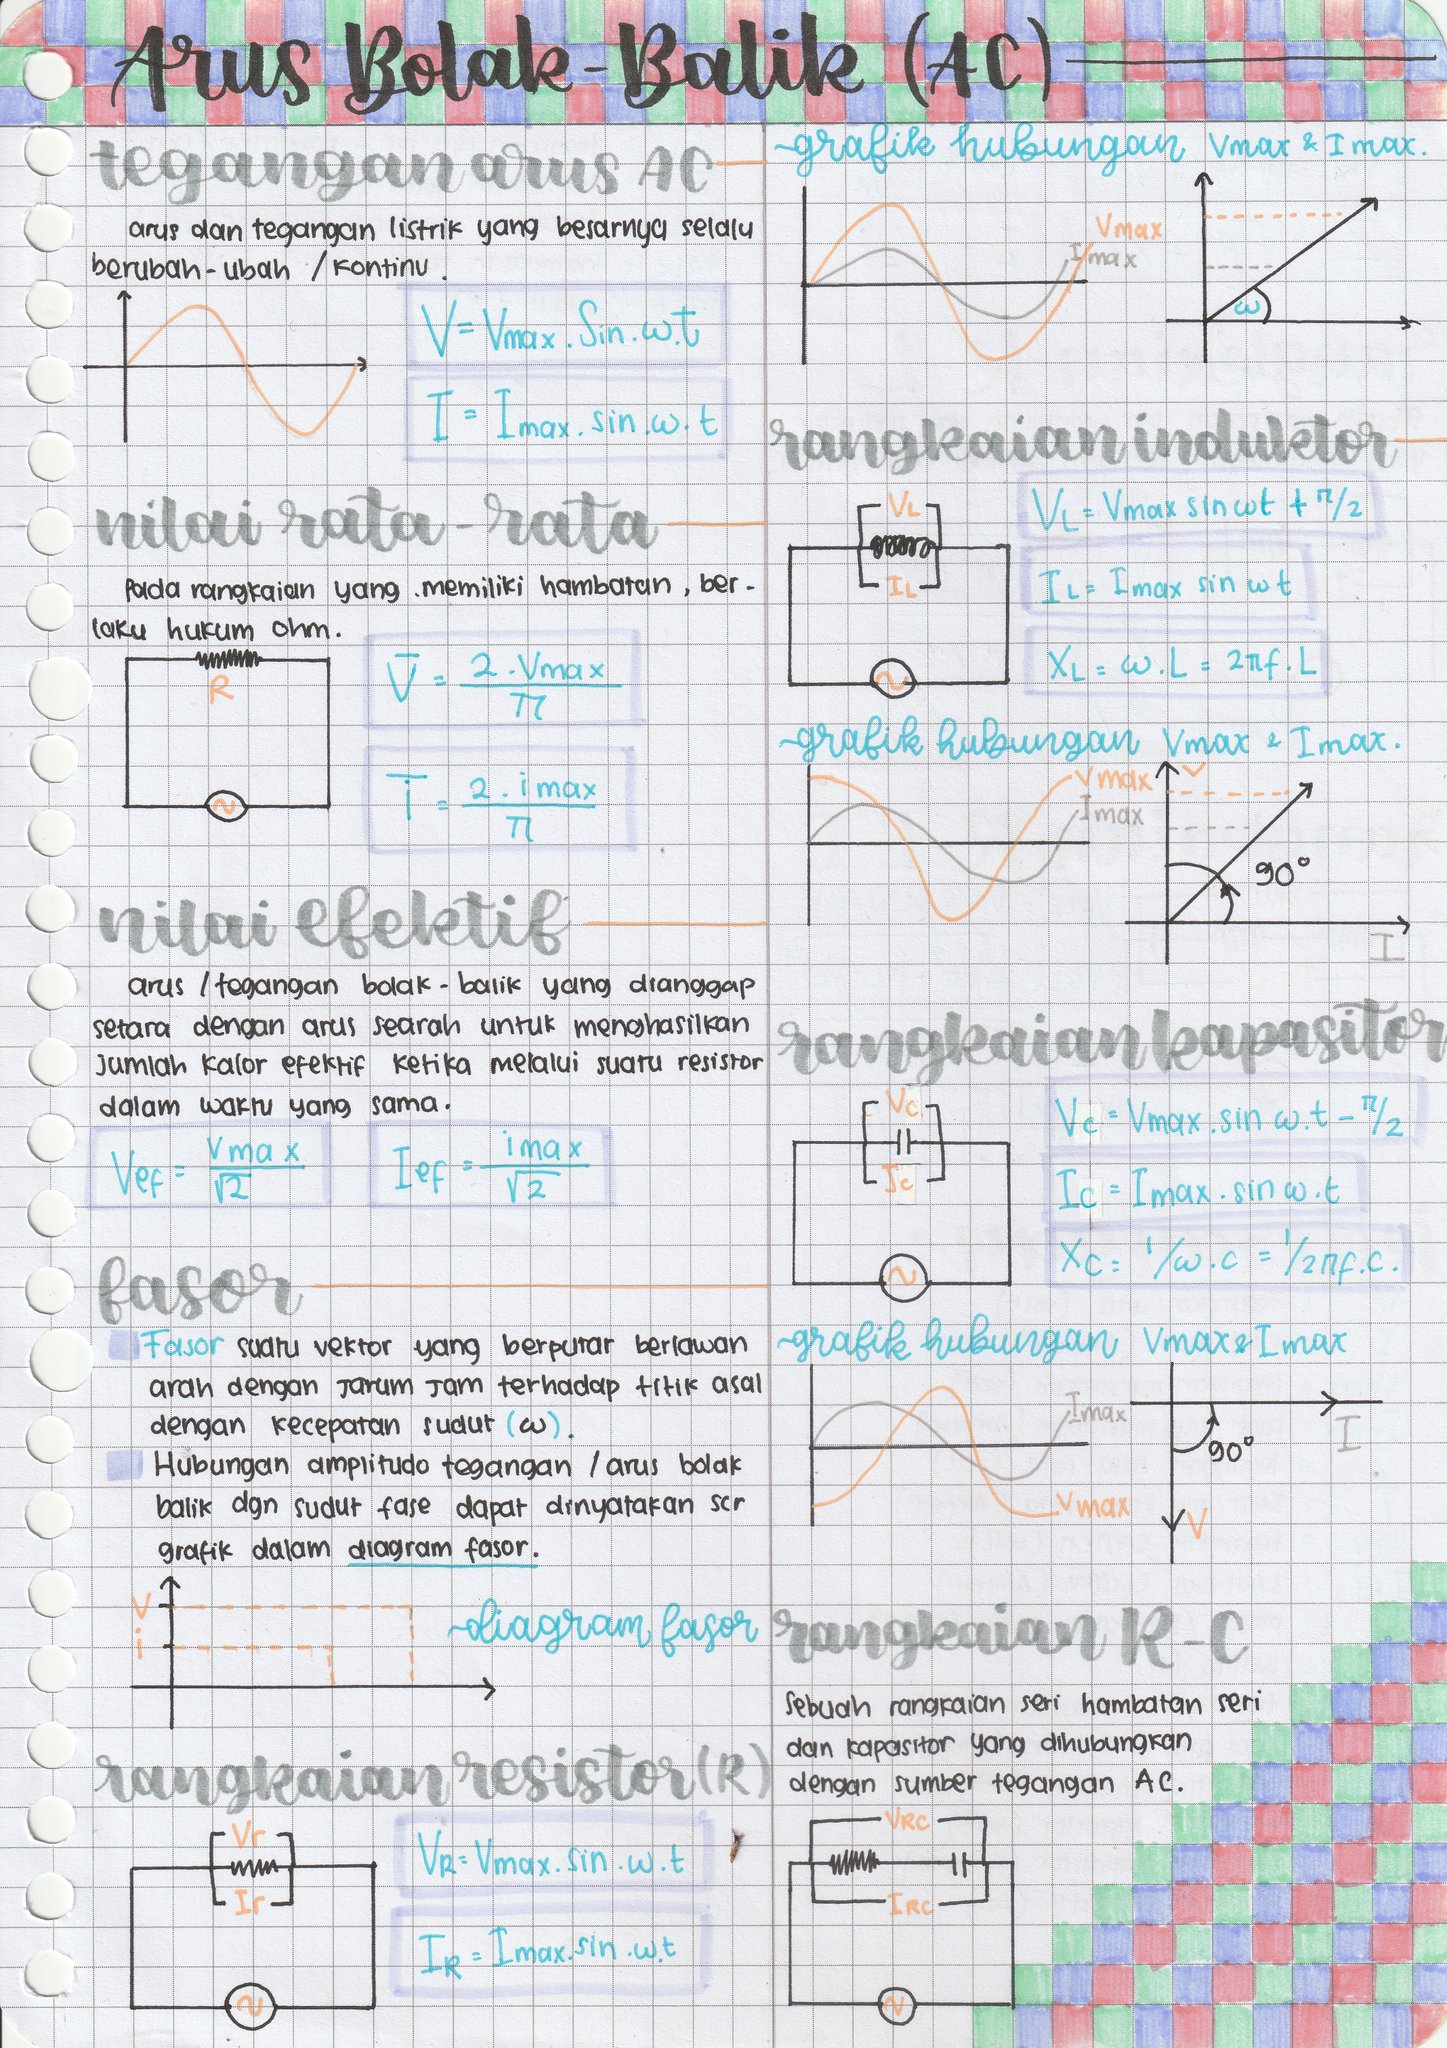 Arus Bolak-Balik (AC)
tegangan arus AC
arus dan tegangan listrik yang besarnya selalu
berubah-ubah / kontinu.
V = Vmax . Sin . ω.t
I = Imax . sin . ω . t
nilai rata-rata
Pada rangkaian yang memiliki hambatan, ber-
laku hukum Ohm.
R
V̅ = 2 . Vmax / π
i̅ = 2 . i max / π
nilai efektif
arus / tegangan bolak-balik yang dianggap
setara dengan arus searah untuk menghasilkan
jumlah kalor efektif ketika melalui suatu resistor
dalam waktu yang sama.
Vef = Vmax / √2
Ief = imax / √2
fasor
Fasor suatu vektor yang berputar berlawan
arah dengan jarum jam terhadap titik asal
dengan kecepatan sudut (ω).
Hubungan amplitudo tegangan / arus bolak
balik dgn sudut fase dapat dinyatakan scr
grafik dalam diagram fasor.
V
i
~diagram fasor
rangkaian resistor (R)
Vr
Ir
VR = Vmax . sin . ω . t
IR = Imax . sin . ω . t
~grafik hubungan Vmax & Imax.
Vmax
Imax
ω
rangkaian induktor
VL
IL
VL = Vmax sin ωt + π/2
IL = Imax sin ωt
XL = ω . L = 2πf . L
~grafik hubungan Vmax & Imax.
Vmax
Imax
V
90°
I
rangkaian kapasitor
Vc
Ic
Vc = Vmax . sin ω . t - π/2
Ic = Imax . sin ω . t
Xc = 1/ω . c = 1/2πf . c .
~grafik hubungan Vmax & Imax
Imax
Vmax
90°
I
V
rangkaian R-C
Sebuah rangkaian seri hambatan seri
dan kapasitor yang dihubungkan
dengan sumber tegangan AC.
VRC
IRC